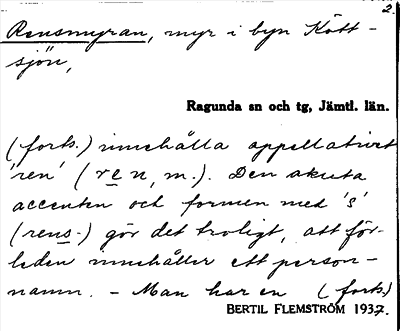 2.
Rensmyran, myr i byn Kött-
sjön,
Ragunda sn och tg, Jämtl. län.
(forts.) innehålla appellativet
'ren' (ren, m.). Den akuta
accenten och formen med 's'
(rens-) gör det troligt, att för-
leden innehåller ett person-
namn. - Man har en (forts.)
BERTIL FLEMSTRÖM 1937.